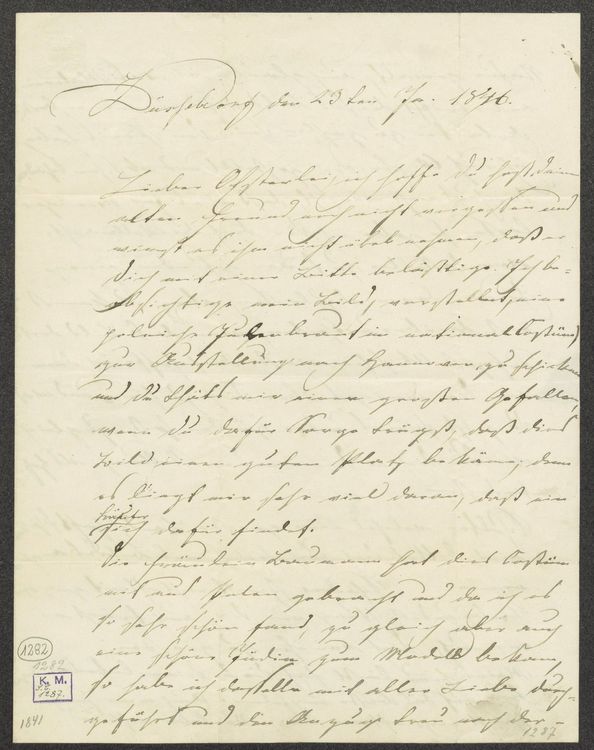 Düsseldorf den 23ten Ja. 1846.
Lieber Oesterley, ich hoffe du hast dein
alten Freund noch nicht vergessen und
wirst es ihm nicht übel nehmen, daß er
dich mit einer Bitte belästige. Ich be-
absichtige mein Bild, vorstellend, eine
polnische Judenbraut in national Costüm
zur Ausstellung nach Hannover, zu schicken
und du thäts mir einen großen Gefallen,
wenn du dafür Sorge trügst, daß dies
Bild einen guten Platz bekäme; denn
es liegt mir sehr viel daran, daß ein
Käufer
sich dafür findet.
Die Fräulein Baumann hat dies Costüm
mit aus Polen gebracht und da ich es
so sehr schön fand, zu gleich aber auch
eine schöne Jüdin zum Modell bekam,
so habe ich dasselbe mit aller Liebe durch-
geführt und den Anzug treu nach der-
1282
1282
K. M.
1287.
1841
1287